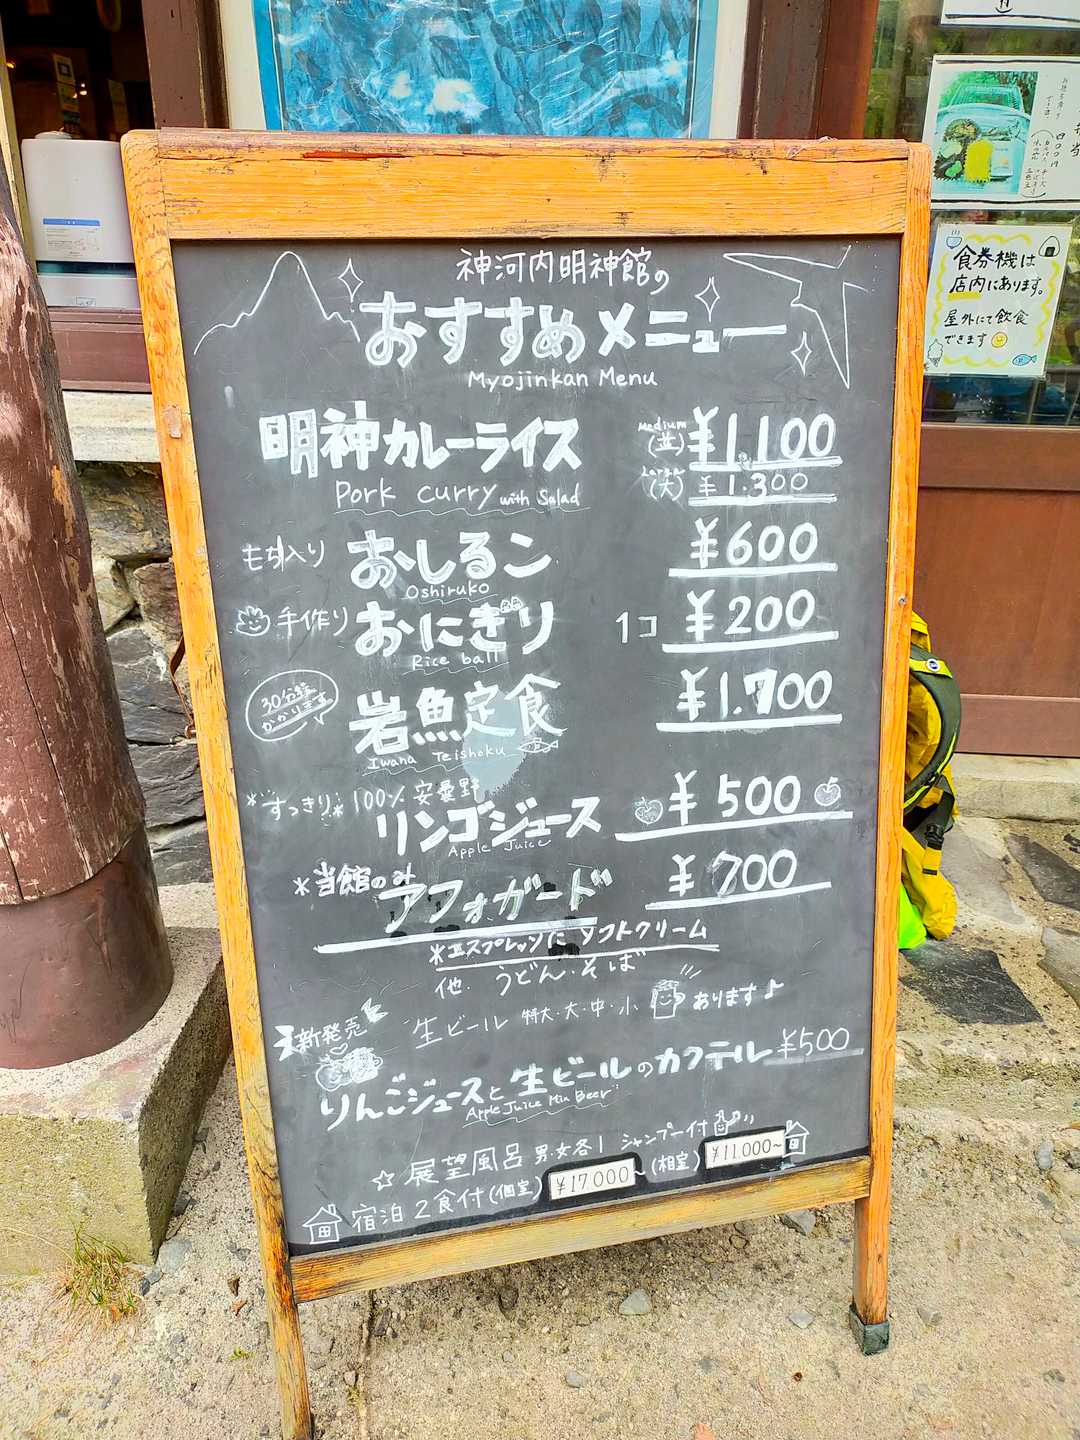 神河内明神館の
おすすめメニュー
Myojinkan Menu
明神カレーライス medium (並) ¥1,100
Pork curry with Salad Large (大) ¥1.300
もち入り おしるこ ¥600
Oshiruko
手作り おにぎり 1コ ¥200
Rice ball
30分程かかります 岩魚定食 ¥1.700
Iwana Teishoku
*すっきり* 100% 安曇野
リンゴジュース ¥500
Apple Juice
*当館のみ
アフォガード ¥700
*エスプレッソにソフトクリーム
他. うどん・そば
生ビール 特大・大・中・小 あります♪
新発売
りんごジュースと生ビールのカクテル ¥500
Apple Juice Mix Beer
☆展望風呂 男・女各1 シャンプー付
宿泊2食付(個室) ¥17,000~ (相室) ¥11,000~
食券機は
店内にあります。
屋外にて飲食
できます